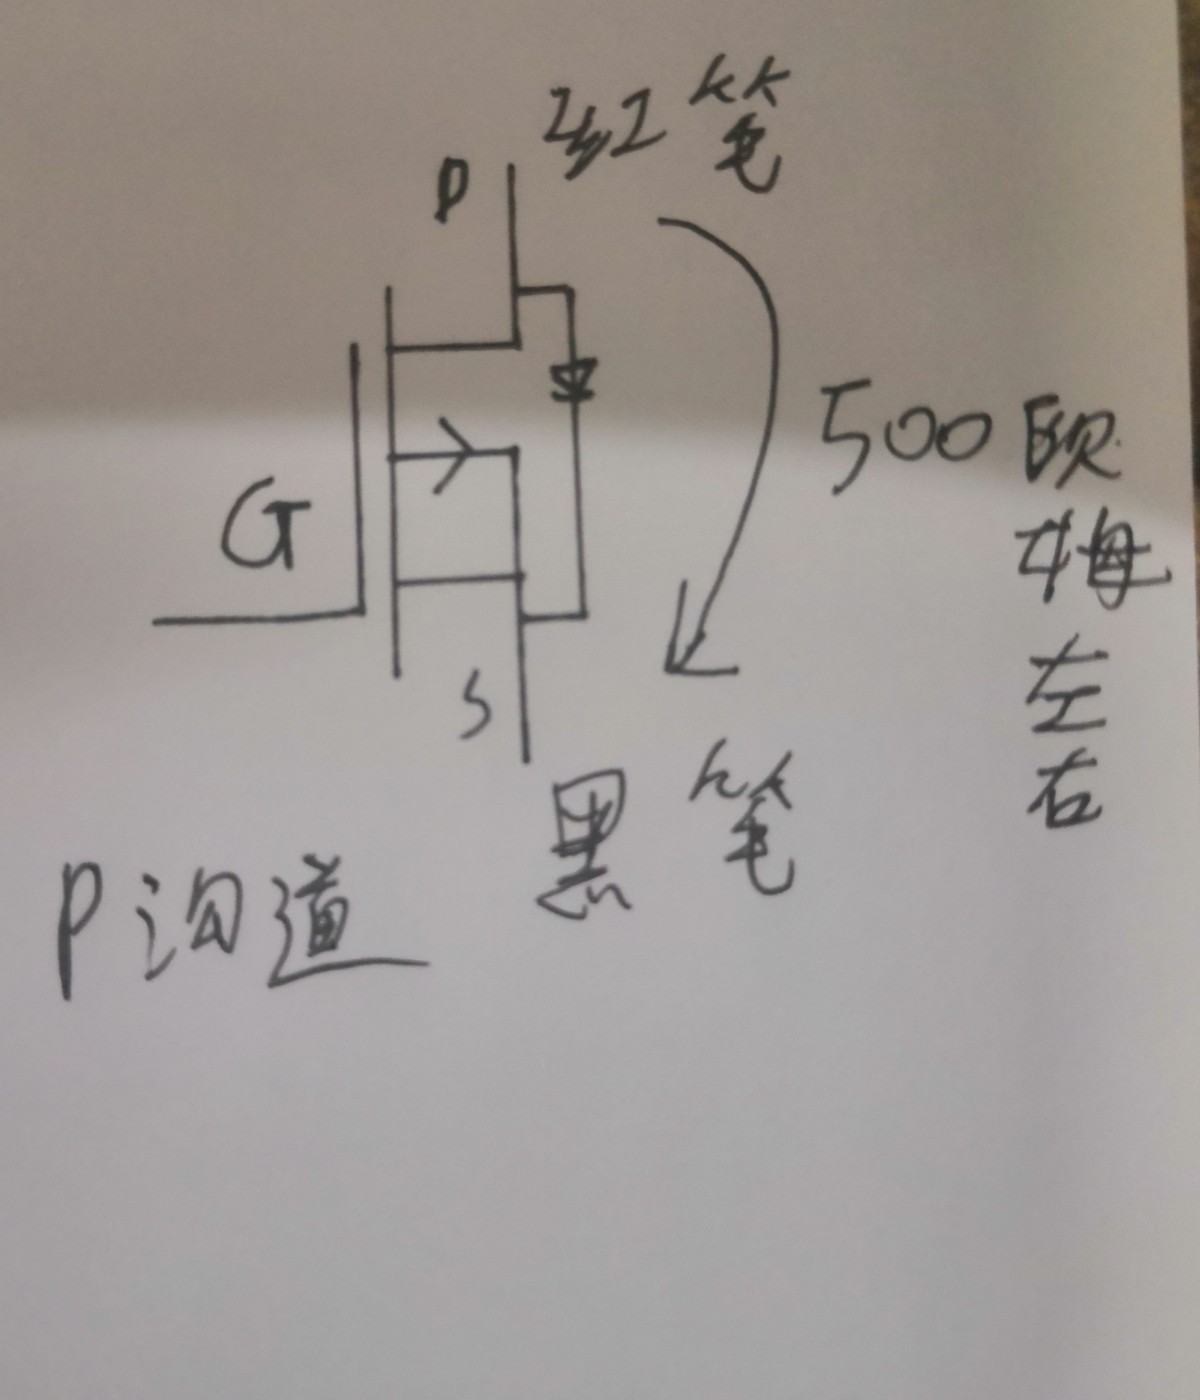 红笔
D
500欧
姆
左
右
G
S
黑笔
P沟道